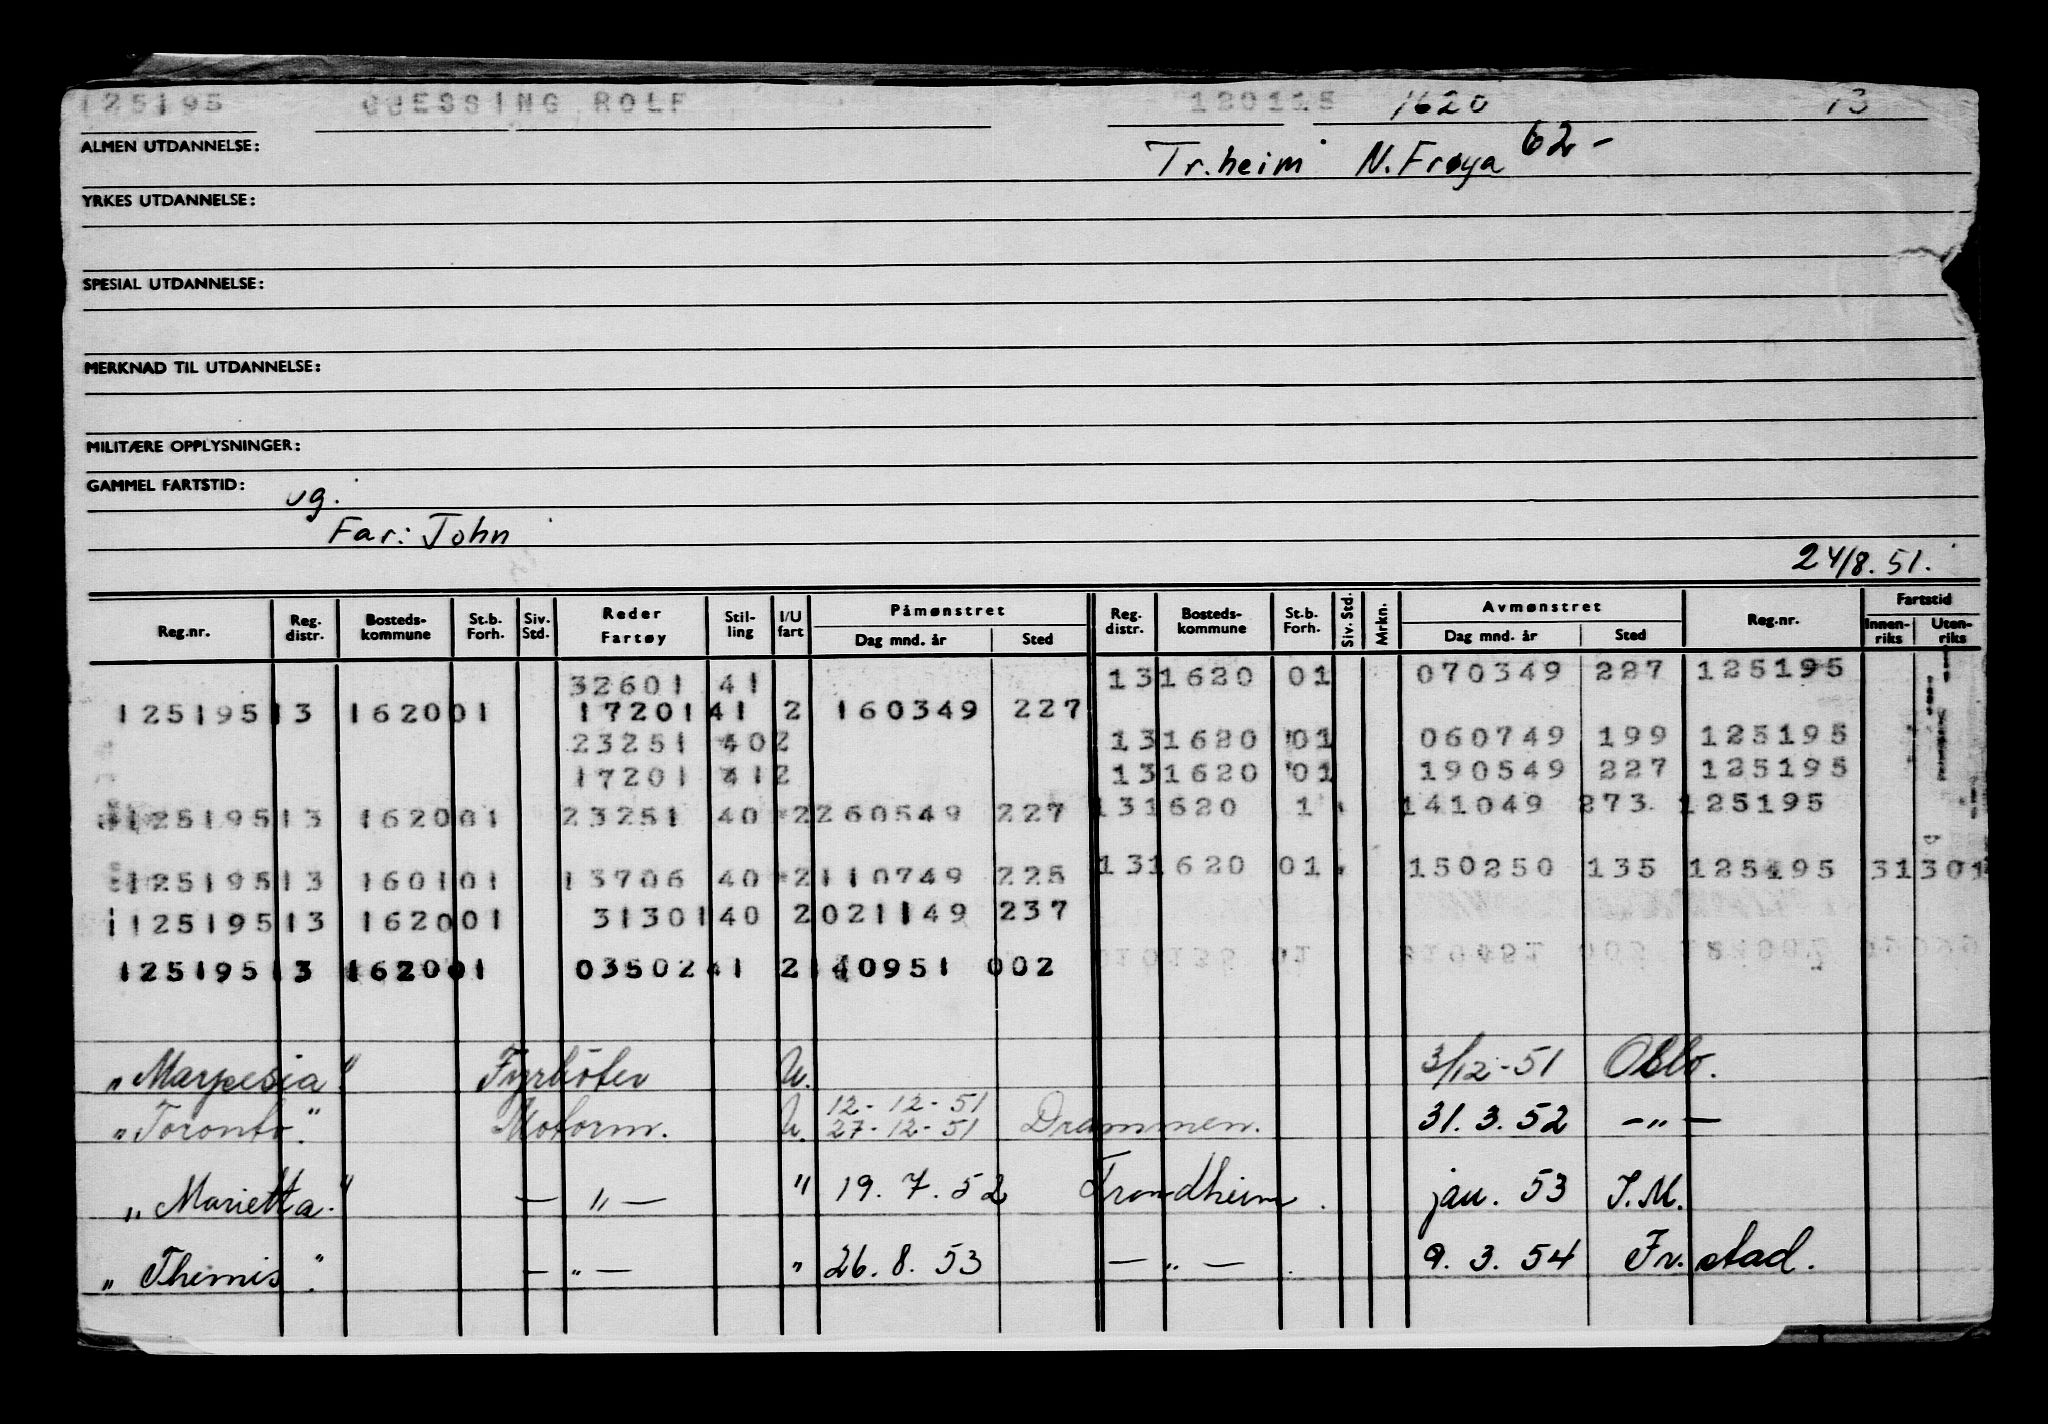 125195 GJESSING ROLF 120115 1620 13
ALMEN UTDANNELSE:
Tr.heim N. Frøya 62-
YRKES UTDANNELSE:
SPESIAL UTDANNELSE:
MERKNAD TIL UTDANNELSE:
MILITÆRE OPPLYSNINGER:
GAMMEL FARTSTID: ug.
Far: John
24/8.51.
Reg.nr. Reg. distr. Bosteds-kommune St.b. Forh. Siv. Std. Reder Fartøy Stil-ling I/U fart Påmønstret Dag mnd. år Sted Reg. distr. Bosteds-kommune St.b. Forh. Siv. Std. Mrkn. Avmønstret Dag mnd. år Sted Reg.nr. Fartstid Innen-riks Uten-riks
32601 41 131620 01 070349 227 125195
125195 13 1620 01 17201 41 2 160349 227
23251 40 2 131620 01 060749 199 125195
17201 41 2 131620 01 190549 227 125195
125195 13 1620 01 23251 40 2 260549 227 131620 1 141049 273 125195
125195 13 1601 01 13706 40 2 110749 225 131620 01 150250 135 125195 31301
125195 13 1620 01 31301 40 2 021149 237
125195 13 1620 01 03502 41 2 140951 002
„Marpesia" Fyrböter U. 3/12-51 Oslo.
„Toronto." Motorm. U. 12-12-51 27-12-51 Drammen. 31.3.52 —„—
„Marietta." —„— " 19.7.52 Trondheim. jan. 53 I.M.
„Themis." —„— " 26.8.53 —„—. 9.3.54 Fr.stad.